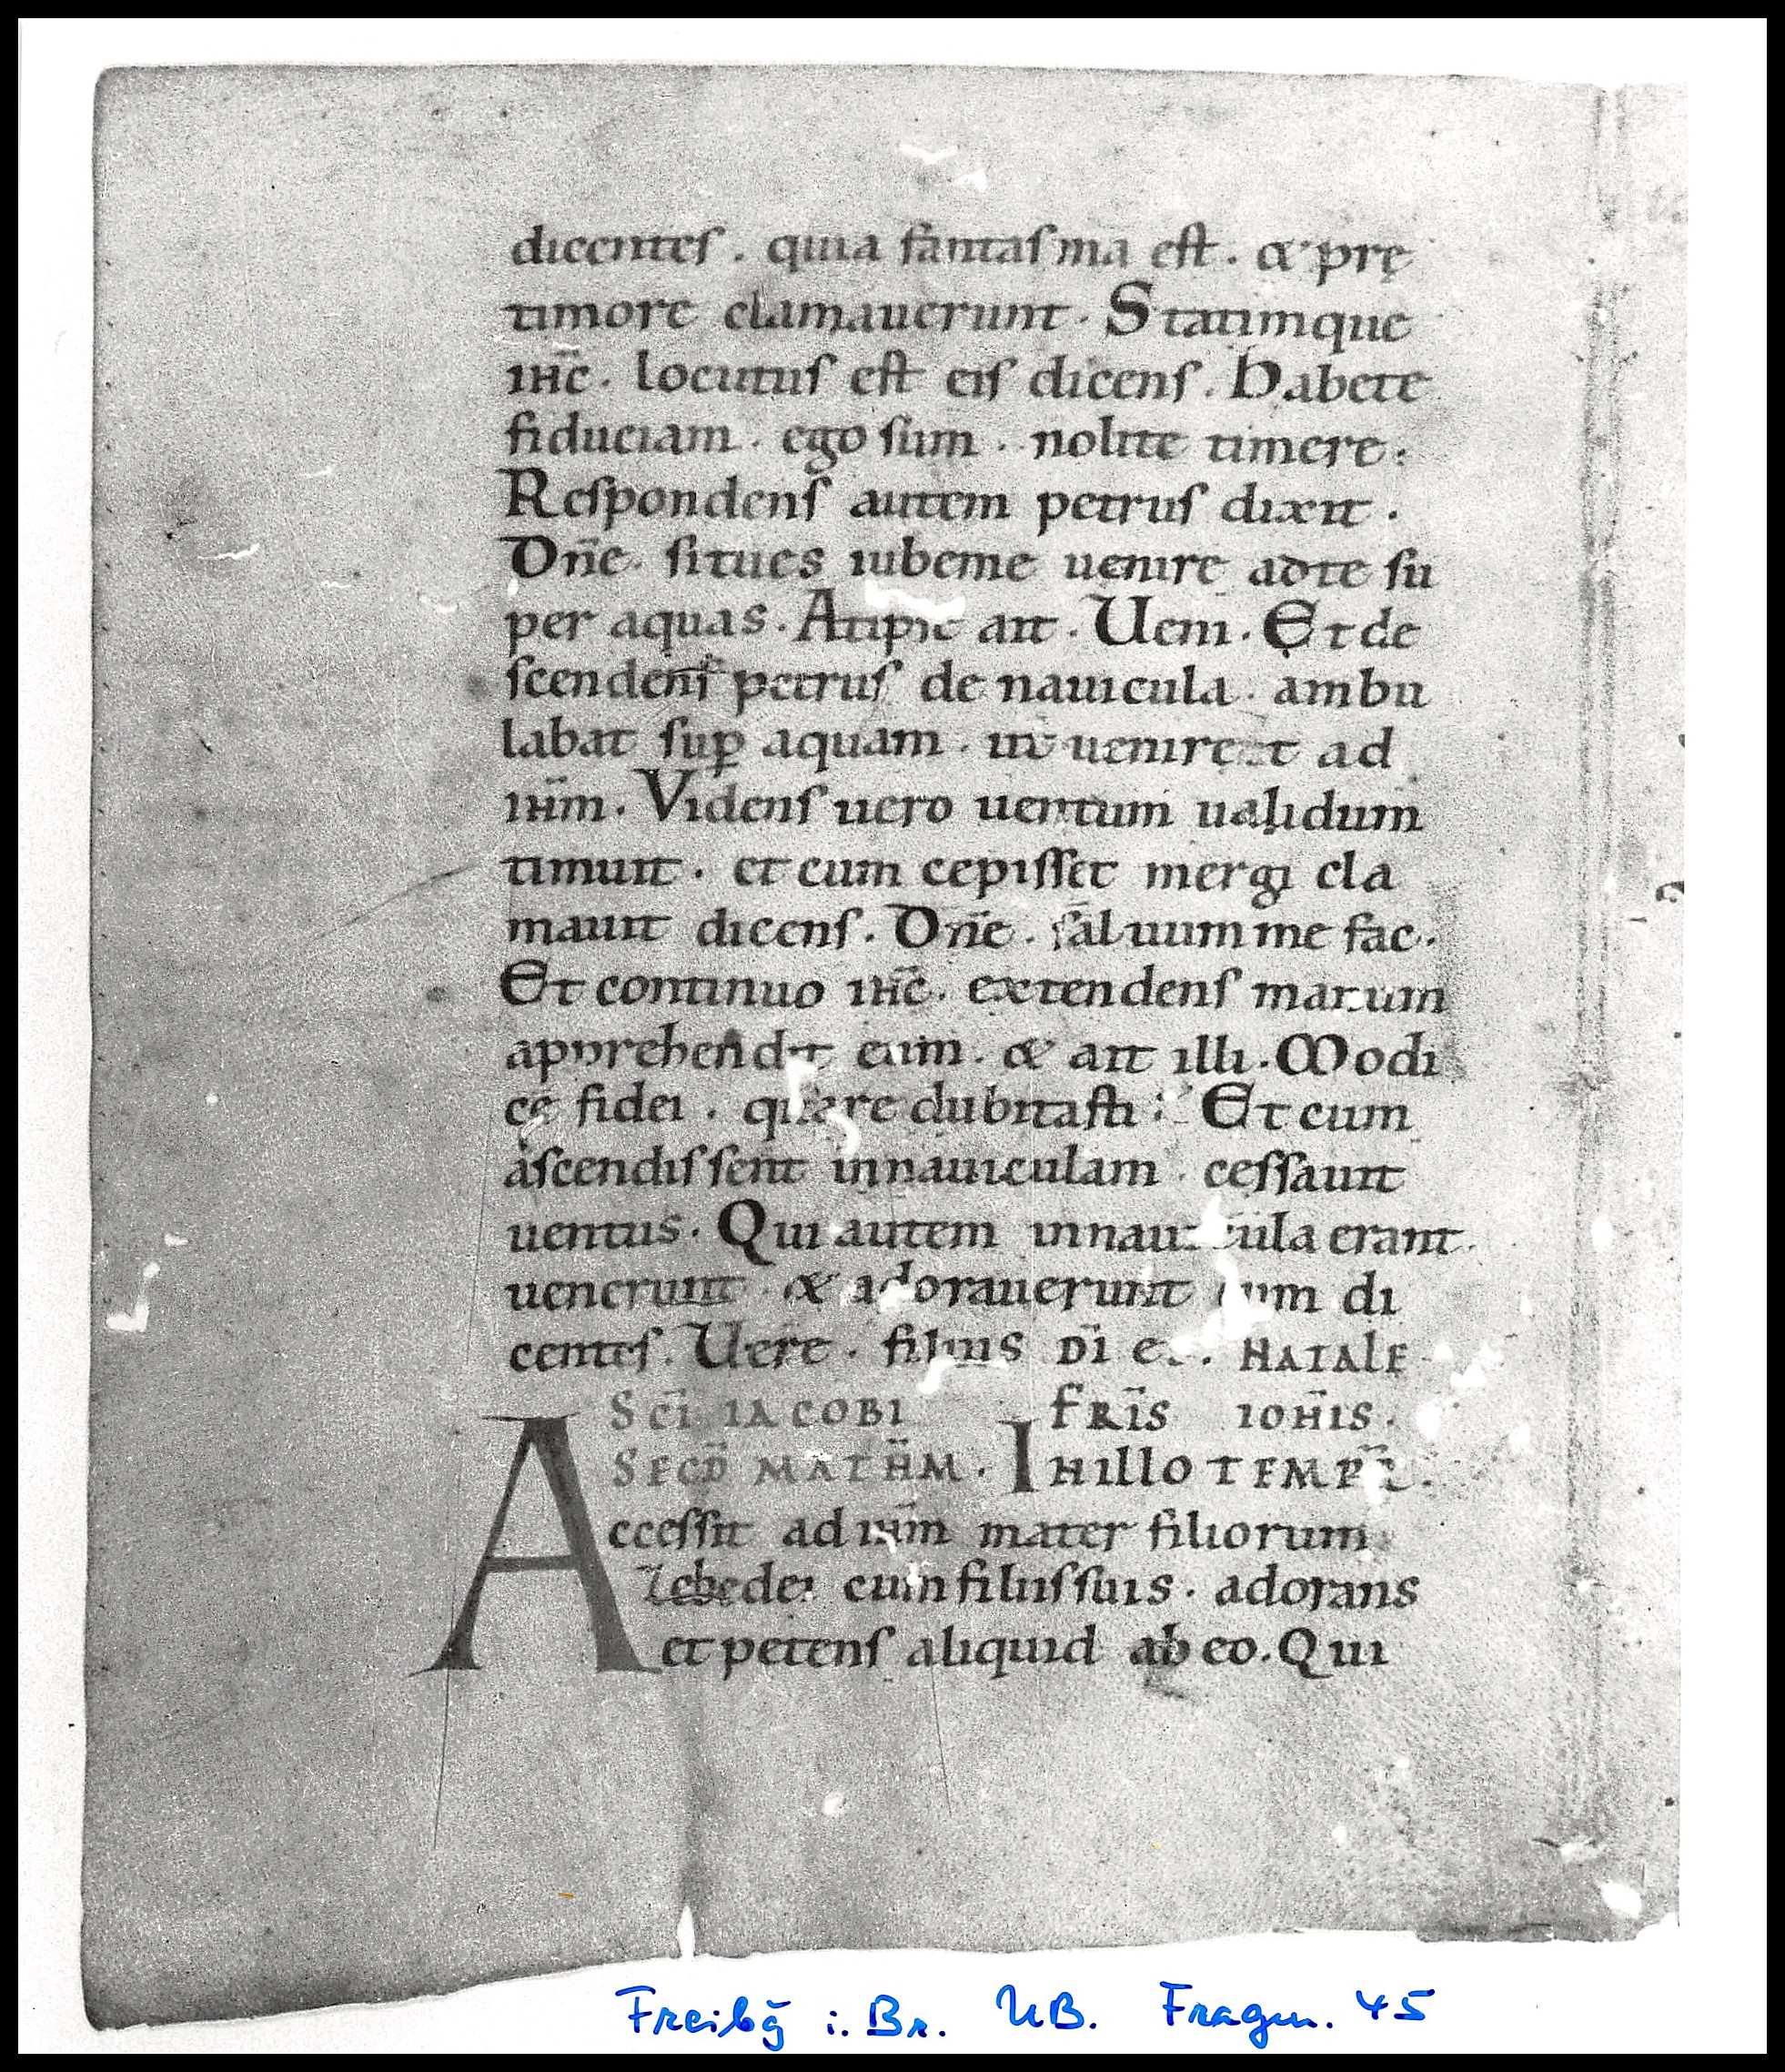 dicentes . quia fantasma est . & prę
timore clamauerunt . Statimque
ihc̅ . locutus est eis dicens . Habete
fiduciam . ego sum . nolite timere .
Respondens autem petrus dixit .
Dn̅e . si tu es iube me uenire ad te su
per aquas . At ipse ait . Ueni . Et de
scendens petrus de nauicula . ambu
labat sup̱ aquam . ut ueniret ad
ihm̅ . Videns uero uentum ualidum
timuit . et cum cepisset mergi cla
mauit dicens . Dn̅e . saluum me fac .
Et continuo ihc̅ . extendens manum
apprehendit eum . & ait illi . Modi
cę fidei . quare dubitasti ? Et cum
ascendissent in nauiculam . cessauit
uentus . Qui autem in nauicula erant .
uenerunt . & adorauerunt eum di
centes . Uere . filius di̅ es . NATALE
SCI̅ IACOBI FRI̅S IOHI̅S .
SECD̅ MATHM̅ . IN ILLO TEMPR̅ .
Accessit ad ihm̅ mater filiorum
Zebedei cum filiis suis . adorans
et petens aliquid ab eo . Qui
Freibg̅ i. Br. UB. Fragm. 45